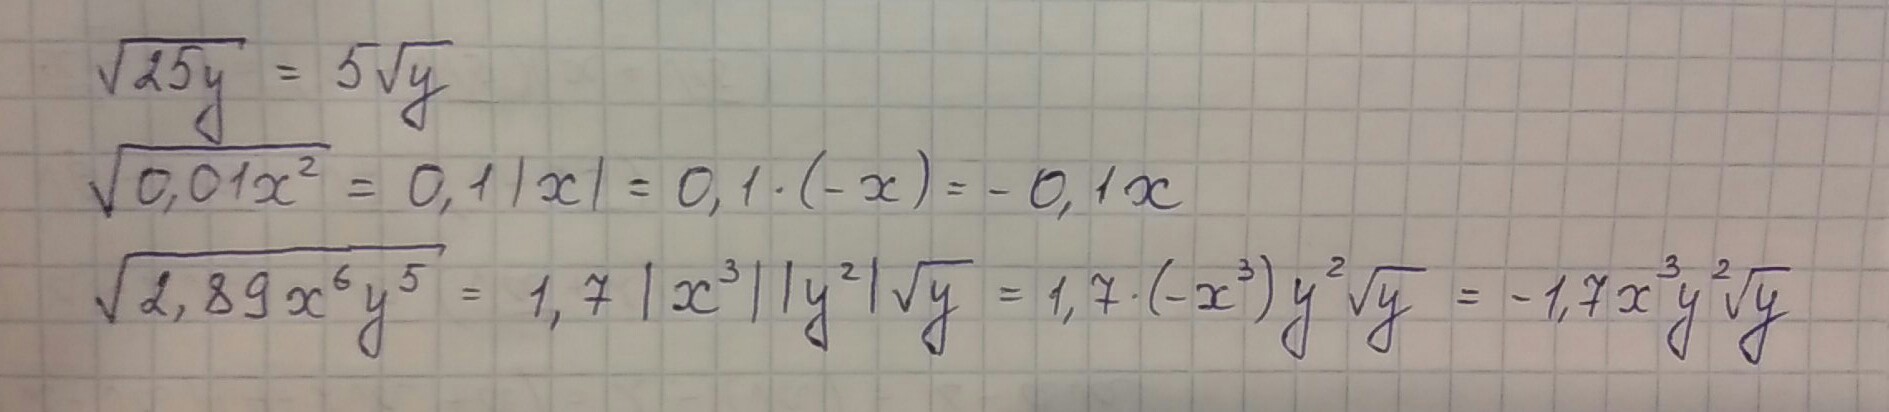 √25y = 5√y
√0,01x² = 0,1|x| = 0,1·(-x) = -0,1x
√2,89x⁶y⁵ = 1,7|x³||y²|√y = 1,7·(-x³)y²√y = -1,7x³y²√y